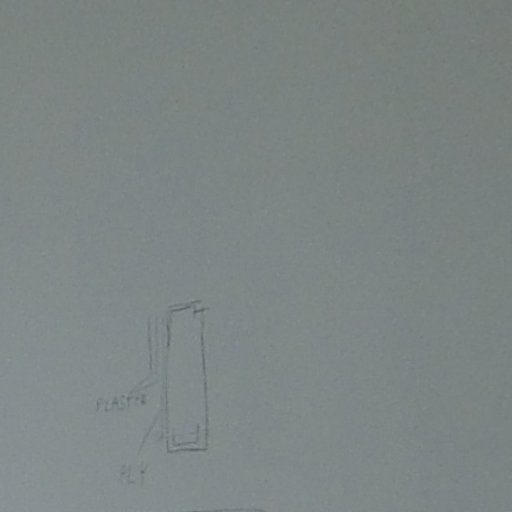 PLASTER
PLY